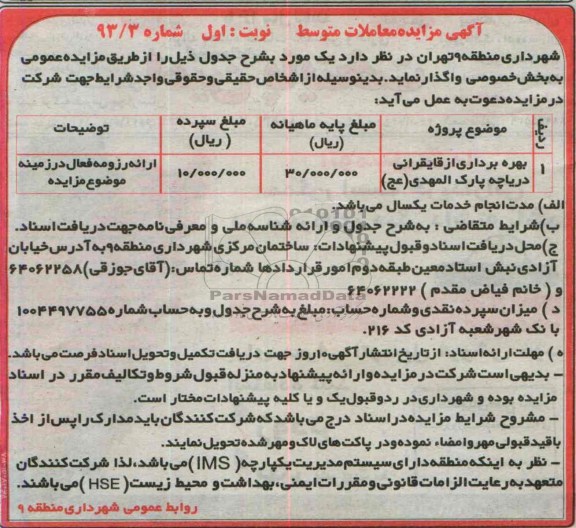 آگهی مزایده معاملات متوسط نوبت : اول شماره ۹۳/۳
شهرداری منطقه ۹ تهران در نظر دارد یک مورد بشرح جدول ذیل را از طریق مزایده عمومی
به بخش خصوصی واگذار نماید. بدینوسیله از اشخاص حقیقی و حقوقی واجد شرایط جهت شرکت
در مزایده دعوت به عمل می آید:
ردیف موضوع پروژه مبلغ پایه ماهیانه (ریال) مبلغ سپرده (ریال) توضیحات
۱ بهره برداری از قایقرانی دریاچه پارک المهدی(عج) ۳۰/۰۰۰/۰۰۰ ۱۰/۰۰۰/۰۰۰ ارائه رزومه فعال در زمینه موضوع مزایده
الف) مدت انجام خدمات یکسال می باشد.
ب) شرایط متقاضی : به شرح جدول و ارائه شناسه ملی و معرفی نامه جهت دریافت اسناد.
ج) محل دریافت اسناد و قبول پیشنهادات: ساختمان مرکزی شهرداری منطقه ۹ به آدرس خیابان
آزادی نبش استاد معین طبقه دوم امور قراردادها شماره تماس:(آقای جوزقی) ۶۴۰۶۲۲۵۸
و ( خانم فیاض مقدم ) ۶۴۰۶۲۲۲۲
ParsNamadData
د ) میزان سپرده نقدی و شماره حساب: مبلغ به شرح جدول و به حساب شماره ۱۰۰۴۴۹۷۷۵۵
بانک شهر شعبه آزادی کد ۲۱۶.
ه ) مهلت ارائه اسناد: از تاریخ انتشار آگهی ۱۰ روز جهت دریافت تکمیل و تحویل اسناد فرصت می باشد.
– بدیهی است شرکت در مزایده و ارائه پیشنهاد به منزله قبول شروط و تکالیف مقرر در اسناد
مزایده بوده و شهرداری در رد و قبول یک و یا کلیه پیشنهادات مختار است.
– مشروح شرایط مزایده در اسناد درج می باشد که شرکت کنندگان باید مدارک را پس از اخذ
باقید قبولی مهر و امضاء نموده و در پاکت های لاک و مهر شده تحویل نمایند.
– نظر به اینکه منطقه دارای سیستم مدیریت یکپارچه( IMS )می باشد، لذا شرکت کنندگان
متعهد به رعایت الزامات قانونی و مقررات ایمنی، بهداشت و محیط زیست( HSE )می باشند.
روابط عمومی شهرداری منطقه ۹